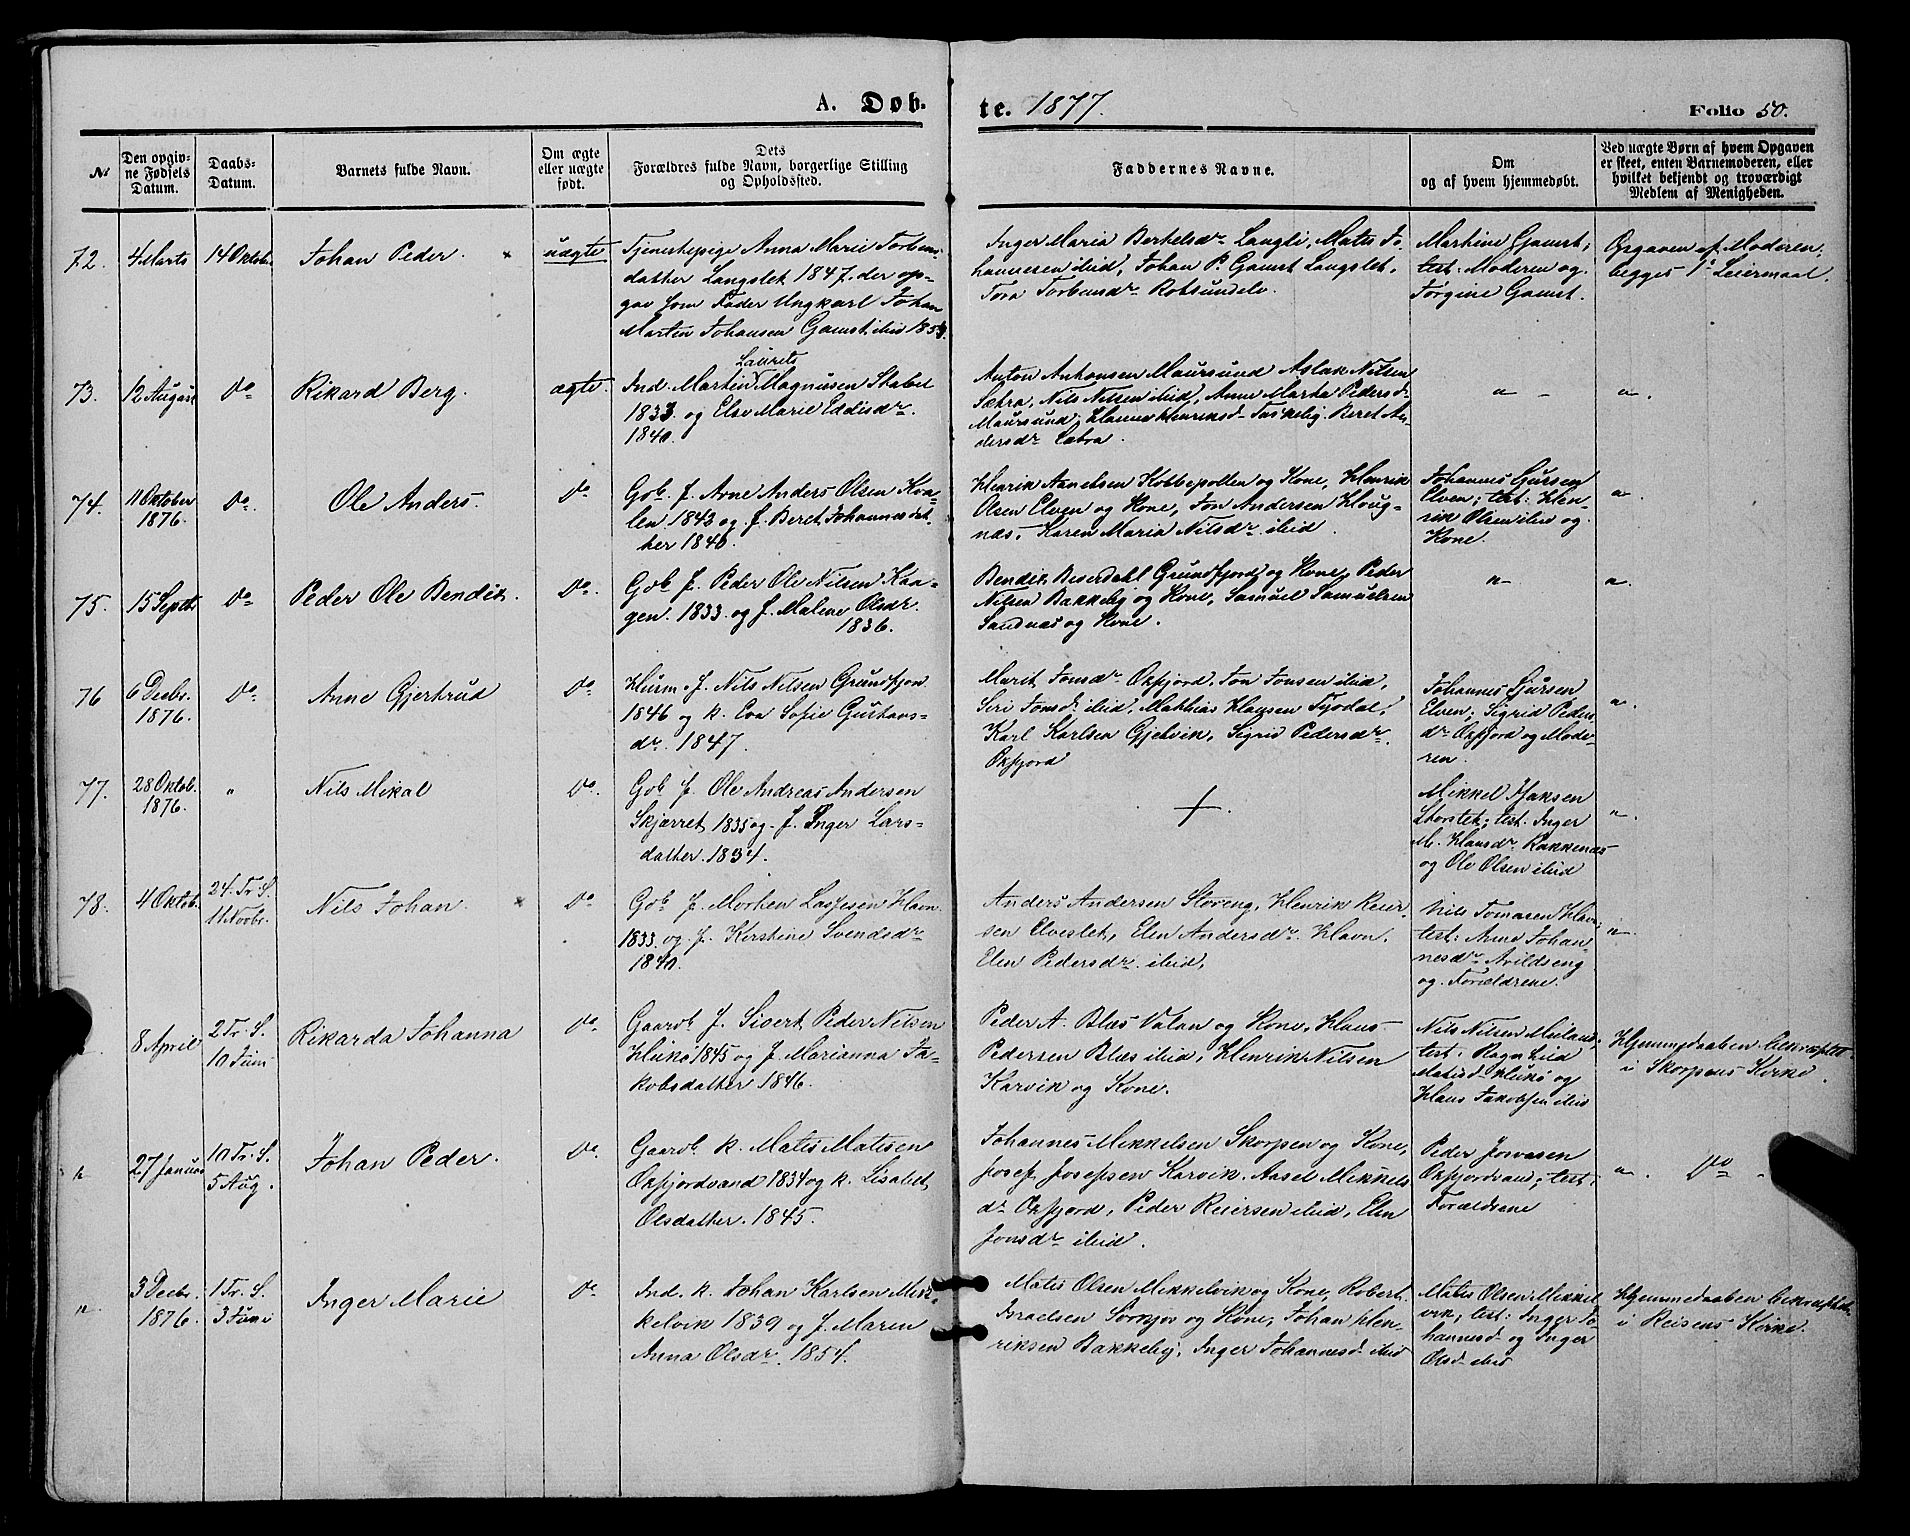 A. Døb-
te. 1877.
Folio 50.
No
Den opgiv-
ne Fødsels
Datum.
Daabs-
Datum.
Barnets fulde Navn.
Om ægte
eller uægte
født.
Dets
Forældres fulde Navn, borgerlige Stilling
og Opholdsted.
Faddernes Navne.
Om
og af hvem hjemmedøbt.
Ved uægte Børn af hvem Opgaven
er skeet, enten Barnemoderen, eller
hvilket bekjendt og troværdigt
Medlem af Menigheden.
72.
4 Marts
14 Oktobr
Johan Peder.
uægte
Tjenestepige Anna Marie Torben-
datter Langslet 1847. der op-
gav som Fader Ungkarl Johan
Marten Johansen Gamst ibid
Inger Maria Bertelsdr Langli, Mats Jo-
hannesen ibid, Johan P. Gamst Langslet,
Tora Torbensdr Rotsundelv.
Martine Gamst;
test: Moderen og
Jørgine Gamst.
Opgaven af Moderen,
begges 1ste Leiermaal.
73.
12 August
Do
Rikard Berg.
ægte.
Laurits
Ind. Martin Magnusen Stabel
1833 og Else Marie Eddisdr.
1840.
Anton Antonsen Maursund Aslak Nilsen
Sætra, Nils Nilsen ibid, Anne Marta Pedersd
Maursund, Hanna Henriksd Taskeby. Beret An-
dersdr Sætra.
74.
11 Oktober
1876.
Do.
Ole Anders.
Do
Gb. f. Arne Anders Olsen Kva-
len 1843 og f. Beret Johannesdat-
ter 1846.
Henrik Kobbepollen og Kone, Henrik
Olsen Elven og Kone, Jon Andersen Houg-
næs, Karen Maria Nilsdr ibid
Johannes Sjursen
Elven; test: Hen-
rik Olsen ibid og
Kone.
75.
15 Septbr
Do
Peder Ole Bendix.
Do.
Gb f. Peder Ole Nilsen Kaa-
gen. 1833 og f. Malene Olsdr.
1836.
Bendix Grundfjord og Kone, Peder
Nilsen Bakkeby og Kone, Samuel Samuelsen
Sandnæs og Kone.
76
6 Decbr.
1876.
Do.
Anne Gjertrud
Do
Husm. f. Nils Nilsen Grundfjord
1846 og k. Eva Sofie Gustavs-
dr. 1847.
Marit Jonsdr Oxfjord, Jon Jonsen ibid,
Siri Jonsd ibid, Mathias Hansen
Karl Karlsen Gjelvik, Sigrid Pedersdr.
Oxfjord
Johannes Sjursen
Elven; Sigrid Peders-
dr Oxfjord og Mode-
ren.
77.
28 Oktob.
1876.
"
Nils Mikal
Do.
Gb f Ole Andreas Andersen
Skjærret 1835 og f. Inger Lars-
datter. 1834.
+
Mikkel Isaksen
Storslet; test: Inger
M. Hansdr Bakkenæs
og Ole Olsen ibid
78.
4 Oktob.
24. Tr. S.
11 Novbr.
Nils Johan.
Do
Gb f Morten Lassesen Havn
1833. og f. Kirstine Svendsdr
1840.
Anders Andersen Storeng, Henrik Reier-
sen Elveslet, Elen Andersdr. Havn,
Elen Pedersdr. ibid,
Nils Tomasen Havn;
test: Anne Johan-
nesdr Avildseng
og Forældrene.
8 April
2 Tr. S.
10 Juni
Rikarda Johanna
Do
Gaardb. f. Sivert Peder Nilsen
Hukø 1845 og f. Marianna Ja-
kobsdatter 1846.
Peder A. Blæs Valan og Kone, Hans
Pedersen Blæs ibid, Henrik Nilsen
Karvik og Kone.
Nils Nilsen
test: Ragnhild
Matisd Hukø og
Hans Jakobsen ibid
Hjemmedaaben bekræftet
i Skorpens Kirke.
"
27 Januar
10 Tr. S.
5 Aug.
Johan Peder.
Do.
Gaardb k. Matis Matisen
Oxfjordvand 1834 og k. Lisabet
Olsdatter. 1845.
Johannes Mikkelsen Skorpen og Kone,
Josef Josefsen Karvik. Aasel Mikkels-
dr Oxfjord, Peder Reiersen ibid, Elen
Jonsdr ibid.
Peder Jonasen
Oxfjordvand; test:
Forældrene
" Do "
"
3 Decbr.
1876.
1 Tr. S.
3 Juni
Inger Marie
Do
Ind. k. Johan Karlsen Mik-
kelvik 1839 og f. Maren
Anna Olsdr. 1854.
Matis Olsen Mikkelvik og Kone, Robert
Israelsen Sørkjos og Kone, Johan Hen-
riksen Bakkeby, Inger Johannesd ibid
Matis Olsen Mikkel-
vik; test: Inger Jo-
hannesd og Inger
Olsd ibid
Hjemmedaaben bekræftet
i Reisens Kirke.